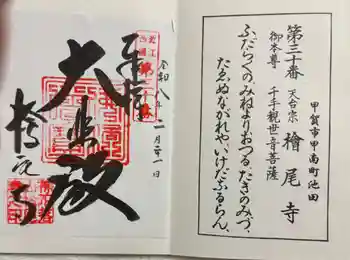 甲賀市甲南町池田
第三十番 天台宗 檜尾寺
御本尊 千手観世音菩薩
ふだらくの、みねよりおつる、たきのみづ、
たゑぬながれや、いけだふるらん、
令和八年二月二十一日
奉拝
大悲殿
檜尾寺